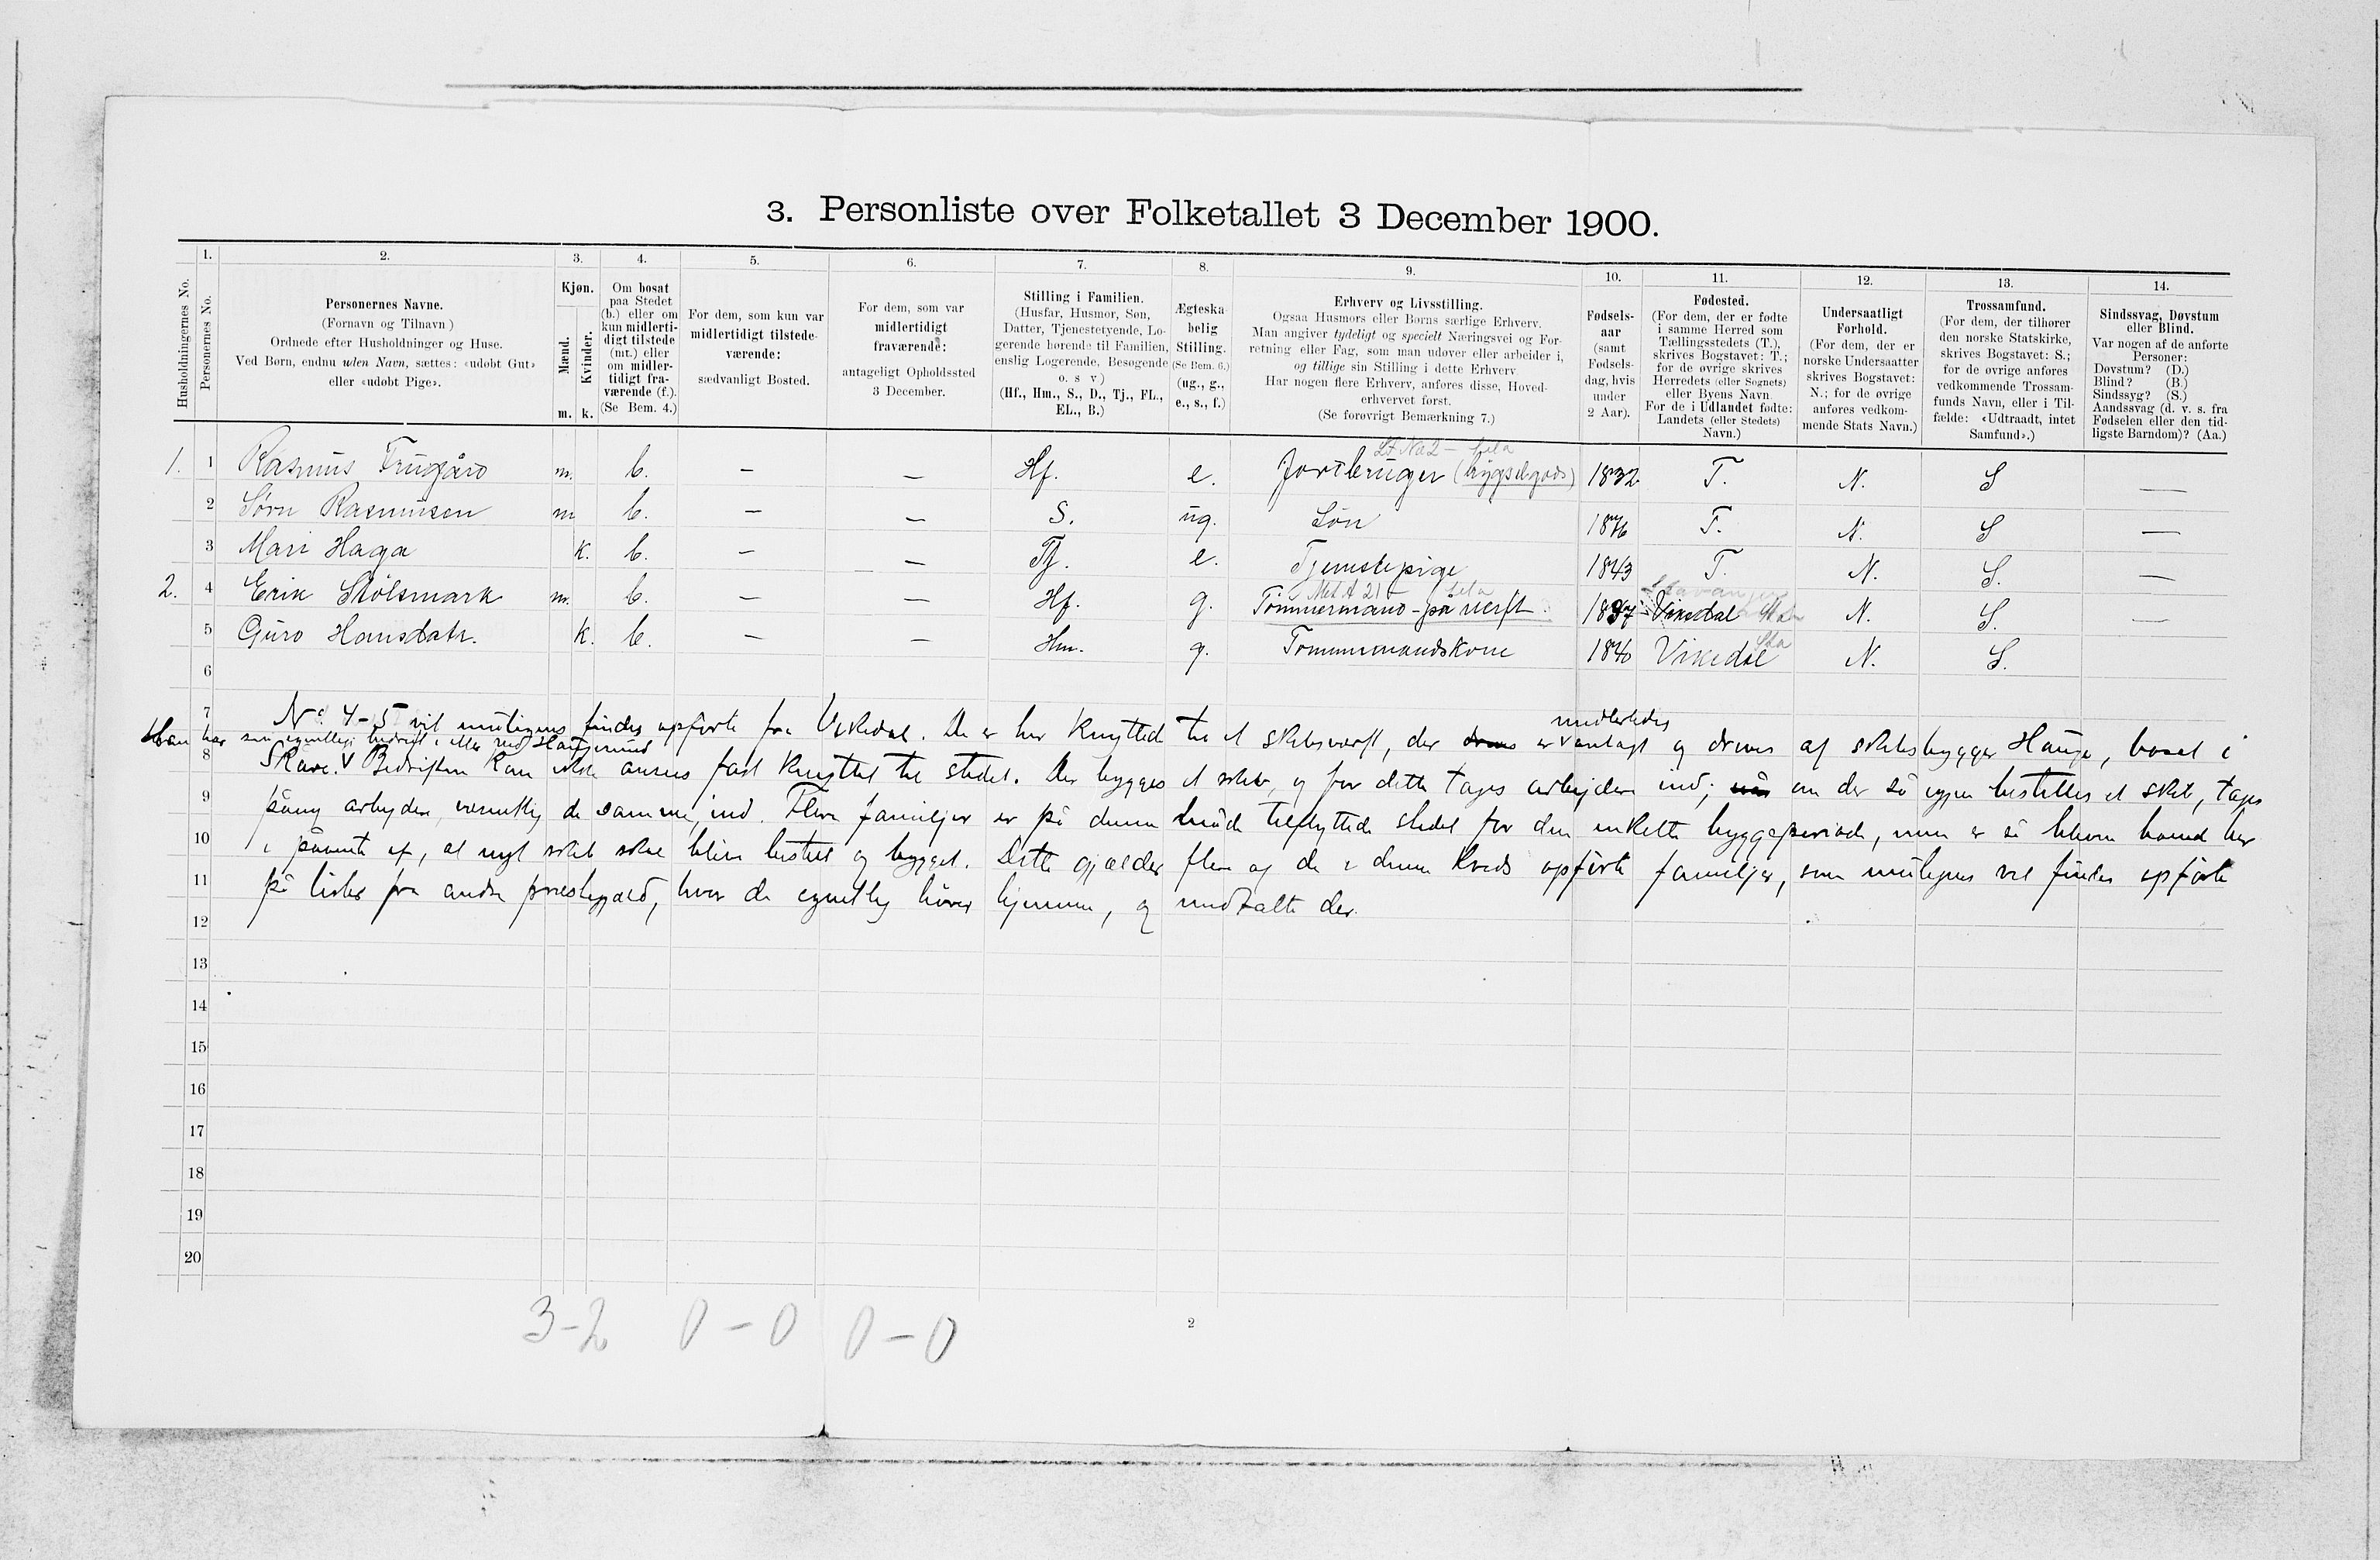 3. Personliste over Folketallet 3 December 1900.
Husholdningernes No.
1. Personernes No.
2. Personernes Navne.
(Fornavn og Tilnavn)
Ordnede efter Husholdninger og Huse.
Ved Børn, endnu uden Navn, sættes: «udøbt Gut»
eller «udøbt Pige».
3. Kjøn.
Mænd. m.
Kvinder. k.
4. Om bosat
paa Stedet
(b.) eller om
kun midlerti-
digt tilstede
(mt.) eller
om midler-
tidigt fra-
værende (f.).
(Se Bem. 4.)
5. For dem, som kun var
midlertidigt tilstede-
værende:
sædvanligt Bosted.
6. For dem, som var
midlertidigt
fraværende:
antageligt Opholdssted
3 December.
7. Stilling i Familien.
(Husfar, Husmor, Søn,
Datter, Tjenestetyende, Lo-
gerende hørende til Familien,
enslig Logerende, Besøgende
o. s v)
(Hf., Hm., S., D., Tj., FL.,
EL., B.)
8. Ægteska-
belig
Stilling.
(Se Bem. 6.)
(ug., g.,
e., s., f.)
9. Erhverv og Livsstilling.
Ogsaa Husmors eller Børns særlige Erhverv.
Man angiver tydeligt og specielt Næringsvei og For-
retning eller Fag, som man udøver eller arbeider i,
og tillige sin Stilling i dette Erhverv
Har nogen flere Erhverv, anføres disse, Hoved-
erhvervet først.
(Se forøvrigt Bemærkning 7.)
10. Fødsels-
aar
(samt
Fødsels-
dag, hvis
under
2 Aar).
11. Fødested.
(For dem, der er fødte
i samme Herred som
Tællingsstedets (T.),
skrives Bogstavet: T.;
for de øvrige skrives
Herredets (eller Sognets)
eller Byens Navn.
For de i Udlandet fødte:
Landets (eller Stedets)
Navn.)
12. Undersaatligt
Forhold.
(For dem, der er
norske Undersaatter
skrives Bogstavet:
N.; for de øvrige
anføres vedkom-
mende Stats Navn.)
13. Trossamfund.
(For dem, der tilhører
den norske Statskirke,
skrives Bogstavet: S.;
for de øvrige anføres
vedkommende Trossam-
funds Navn, eller i Til-
fælde: «Udtraadt, intet
Samfund».)
14. Sindssvag, Døvstum
eller Blind.
Var nogen af de anførte
Personer:
Døvstum? (D.)
Blind? (B.)
Sindssyg? (S.)
Aandssvag (d. v. s. fra
Fødselen eller den tid-
ligste Barndom)? (Aa.)
1. 1 Rasmus m. b. – – Hf. e. Jordbruger (bygselgods) 1832 T. N. S —
2 Sørn Rasmusen m b. – – S. ug. Søn 1876 T. N. S —
3 Mari Haga k. b. – – Tj. e. Tjenestepige 1843 T. N. S. —
2. 4 Erik Stølsmark m. b. – – Hf. g. Tømmermand - på verft Vikedal N. S. —
5 Guro Hansdatr. k. b. – – Hm. g. Tømmermandskone 1840 Vikedal N. S.
6
7 No 4-5 vil muligens findes opførte fra Vikedal. De er her knytted til et skibsværft, der er midlertidig anlagt og drives af skibsbygger Hauge, bosat i
Han har sin egentlige bedrift i eller ved Haugesund
8 Skåre. V Bedriften kan ikke anses fast knyttet til stedet. Der bygges et skib, og for dette tages arbejdere ind; om der så igjen bestilles et skib, tages
9 påny arbejdere, væsentlig de samme, ind. Flere familjer er på denne måde tilflyttede stedet for den enkelte byggeperiode, men er så blevne boende her
10 i påvente af, at nyt skib skal blive bestilt og bygget. Dette gjælder flere af de i denne kreds opførte familjer, som muligens vil findes opførte
11 på lister fra andre præstegjæld, hvor de egentlig hører hjemme, og medtalte der.
12
13
14
15
16
17
18
19
20
3-2 0-0 0-0
2